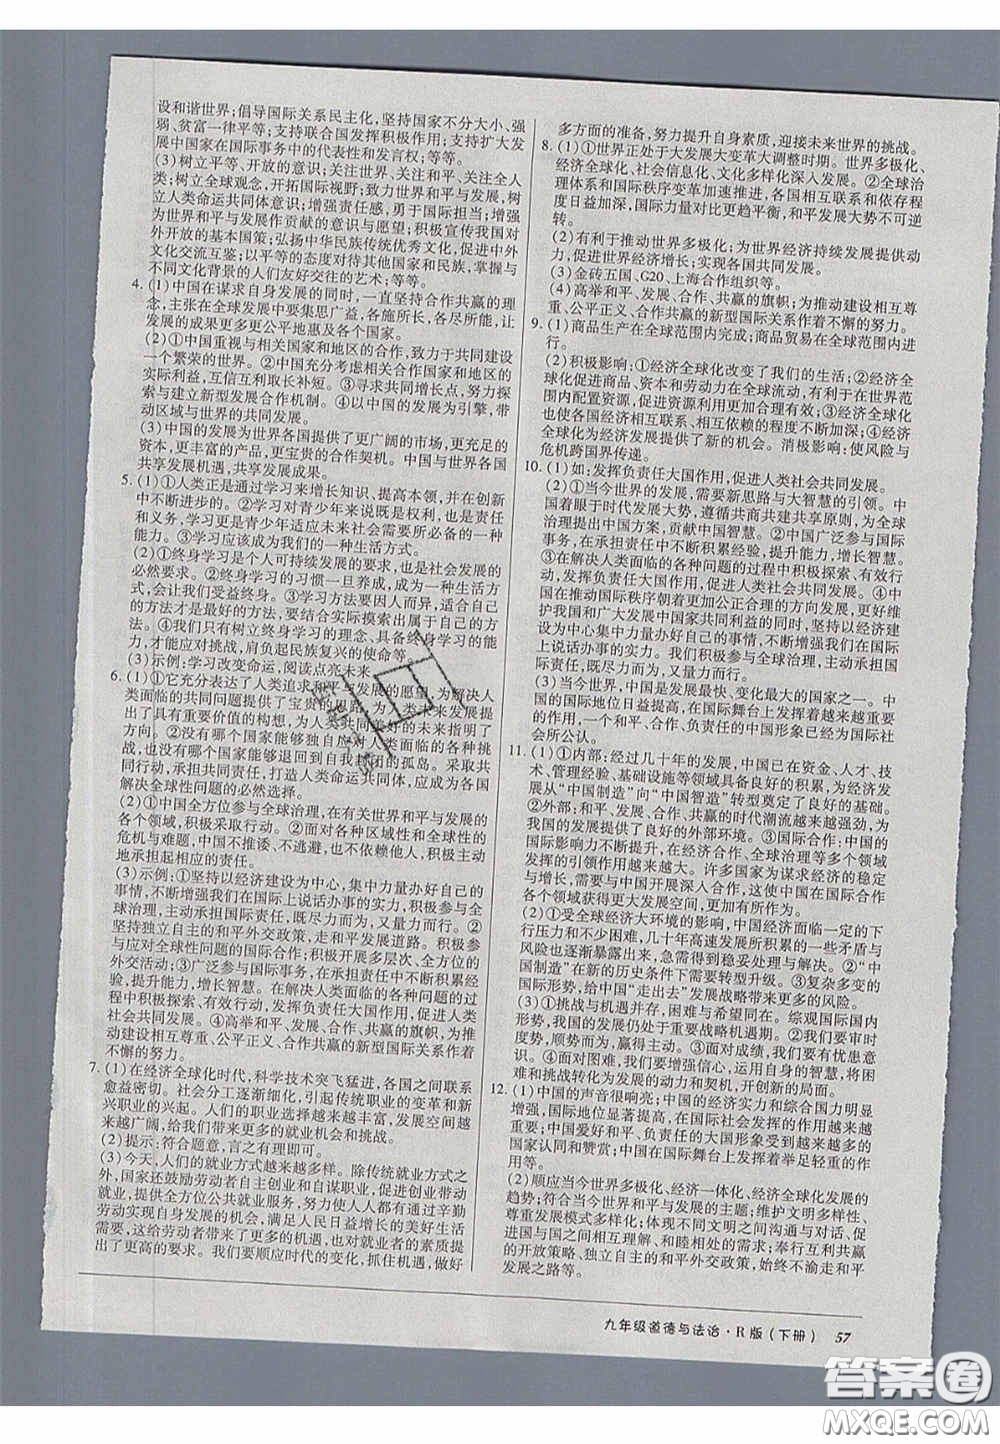 设和谐世界;倡导国际关系民主化,坚持国家不分大小、强
弱、贫富一律平等;支持联合国发挥积极作用;支持扩大发
展中国家在国际事务中的代表性和发言权;等等。
(3)树立平等、开放的意识;关注世界、关注和平、关注全人
类;树立全球观念,开拓国际视野;致力世界和平与发展,树
立人类命运共同体意识;增强责任感,勇于国际担当;增强
为世界和平与发展作贡献的意识与愿望;积极宣传我国对
外开放的基本国策;弘扬中华民族传统优秀文化,促进中外
文化交流互鉴;以平等的态度对待其他国家和民族,掌握与
不同文化背景的人们友好交往的艺术;等等。
4. (1)中国在谋求自身发展的同时,一直坚持合作共赢的理
念,主张在全球发展中要集思广益,各施所长,各尽所能,让
发展的成果更多更公平地惠及各个国家。
(2)①中国重视与相关国家和地区的合作,致力于共同建设
一个繁荣的世界。②中国充分考虑相关合作国家和地区的
实际利益,互信互利取长补短。③寻求共同增长点,努力探
索与建立新型发展合作机制。④以中国的发展为引擎,带
动区域与世界的共同发展。
(3)中国的发展为世界各国提供了更广阔的市场,更充足的
资本,更丰富的产品,更宝贵的合作契机。中国与世界各国
共享发展机遇,共享发展成果。
5. (1)①人类正是通过学习来增长知识、提高本领,并在创新
中不断进步的。②学习对青少年来说既是权利,也是责任
和义务,学习更是青少年适应未来社会需要所必备的一种
能力。③学习应该成为我们的一种生活方式。
(2)①终身学习是个人可持续发展的要求,也是社会发展的
必然要求。②终身学习的习惯一旦养成,成为一种生活方
式,会让我们受益终身。③学习方法要因人而异,适合自己
的方法才是最好的方法,要结合实际摸索出属于自己的方
法。④我们只有树立终身学习的理念、具备终身学习的能
力,才能应对挑战,肩负起民族复兴的使命等。
(3)示例:学习改变命运,阅读点亮未来
6. (1)①它充分表达了人类追求和平与发展的愿望,为解决人
类面临的共同问题提供了宝贵的思路,为人类未来发展提
出了具有重要价值的构想,为人类共同美好的未来指明了
方向。②没有哪个国家能够独自应对人类面临的各种挑
战,也没有哪个国家能够退回到自我封闭的孤岛。采取共
同行动,承担共同责任,打造人类命运共同体,应成为各国
解决全球性问题的必然选择。
(2)①中国全方位参与全球治理,在有关世界和平与发展的
各个领域,积极采取行动。②面对各种区域性和全球性的
危机与艰难,中国不推诿、不逃避,也不依赖他人,积极主动
地承担起相应的责任。
(3)示例:①坚持以经济建设为中心,集中力量办好自己的
事情,不断增强我们在国际上说话办事的实力,积极参与全
球治理,主动承担国际责任,既尽力而为,又量力而行。②
坚持独立自主的和平外交政策,走和平发展道路。积极参
与应对全球性问题的国际合作;积极开展多层次、全方位的
外交活动;③广泛参与国际事务,在国际合作中不断积累经
验,提升能力,增长智慧。在解决人类面临的各种问题的过
程中积极探索、有效行动,发挥负责任大国作用,促进人类
社会共同发展。④高举和平、发展、合作、共赢的旗帜,为推
动建设相互尊重、公平正义、合作共赢的新型国际关系作着
不懈的努力。
7. (1)在经济全球化时代,科学技术突飞猛进,各国之间联系
愈益密切。社会分工逐渐细化,引起传统职业的变革和新
兴职业的兴起。人们的职业选择越来越丰富,发展空间越
来越广阔,给我们带来更多的就业机会和挑战。
(2)提示:符合题意,言之有理即可。
(3)今天,人们的就业方式越来越多样。除传统就业方式之
外,国家还鼓励劳动者自主创业和自谋职业,促进创业带动
就业,并提供全方位公共就业服务,努力使人人都有通过辛勤
劳动实现自身发展的机会,满足人民日益增长的美好生活
需要,这给劳动者带来了更多的机会,也对就业者的素质提
出了更高的要求。我们要顺应时代的变化,抓住机遇,做好
多方面的准备,努力提升自身素质,迎接未来世界的挑战。
8. (1)①世界正处于大发展大变革大调整时期。世界多极化、
经济全球化、社会信息化、文化多样化深入发展。②全球治
理体系和国际秩序变革加速推进,各国相互联系和依存程
度日益加深,国际力量对比更趋平衡,和平发展大势不可逆
转。
(2)有利于推动世界多极化;为世界经济持续发展提供动
力,促进世界经济增长;实现各国共同发展。
(3)金砖五国、G20、上海合作组织等。
(4)高举和平、发展、合作、共赢的旗帜;为推动建设相互尊
重、公平正义、合作共赢的新型国际关系作着不懈的努力。
9. (1)商品生产在全球范围内完成;商品贸易在全球范围内进
行。
(2)积极影响:①经济全球化改变了我们的生活;②经济全
球化促进商品、资本和劳动力在全球流动,有利于在世界范
围内配置资源,促进资源利用更加合理有效;③经济全球化
也使各国经济相互联系、相互依赖的程度不断加深;④经济
全球化为经济发展提供了新的机会。消极影响:使风险与
危机跨国界传递。
10. (1)如:发挥负责任大国作用,促进人类社会共同发展。
(2)①当今世界的发展,需要新思路与大智慧的引领。中
国着眼于时代发展大势,遵循共商共建共享原则,为全球
治理提出中国方案,贡献中国智慧。②中国广泛参与国际
事务,在国际合作中不断积累经验,提升能力,增长智慧。
③在解决人类面临的各种问题的过程中积极探索、有效行
动,发挥负责任大国作用,促进人类社会共同发展。④中
国在推动国际秩序朝着更加公正合理的方向发展,更好维
护我国和广大发展中国家共同利益的同时,坚持以经济建
设为中心集中力量办好自己的事情,不断增强我们在国际
上说话办事的实力。我们积极参与全球治理,主动承担国
际责任,既尽力而为,又量力而行。
(3)当今世界,中国是发展最快、变化最大的国家之一。中
国的国际地位日益提高,在国际舞台上发挥着越来越重要
的作用,一个和平、合作、负责任的中国形象已经为国际社
会所公认。
11. (1)①内部:经过几十年的发展,中国已在资金、人才、技
术、管理经验、基础设施等领域具备良好的积累,为经济发
展从“中国制造”向“中国智造”转型奠定了良好的基础。
②外部:和平、发展、合作、共赢的时代潮流越来越强劲,为
我国的发展提供了良好的外部环境。③国际合作:中国的
国际影响力不断提升,在经济合作、全球治理等多个领域
发挥的引领作用越来越大。许多国家为谋求经济的稳定
与增长,需要与中国开展深入合作,这使中国在国际合作
各个领域获得更大发展空间,更加有所作为。
(2)①受全球经济大环境的影响,中国经济面临一定的下
行压力和不少困难,几十年高速发展所积累的一些矛盾与
风险也逐渐暴露出来,急需得到稳妥处理与解决。②“中
国制造”在新的历史条件下需要转型升级。③复杂多变的
国际形势,给中国“走出去”发展战略带来更多的风险。
(3)①挑战与机遇并存,困难与希望同在。综观国际国内
形势,我国的发展仍处于重要战略机遇期。②我们要审时
度势,顺势而为,赢得主动。③面对成绩,我们要有忧患意
识。④面对困难,我们要坚定信心,增强勇气,迎难而上,将
困难和挑战转化为发展的动力和契机,开创新的局面。
12. (1)中国的声音很响亮;中国的经济实力和综合国力明显
增强,国际地位显著提高,在国际社会中发挥的作用越来越
大;中国爱好和平、负责任的大国形象受到越来越多的
国家认同和赞赏;中国在国际舞台上发挥着举足轻重的作
用等。
(2)顺应当今世界多极化、经济一体化、经济全球化发展的
趋势;符合当今世界和平与发展的主题;维护文明多样性、
尊重发展模式多样化;体现不同文明之间沟通与对话,促
进国与国之间相互理解、和睦相处的需求;奉行互利共赢
的开放策略、独立自主的和平外交政策,始终不渝走和平
发展之路等。
九年级道德与法治·R版(下册) 57
答案圈
MXQE.COM